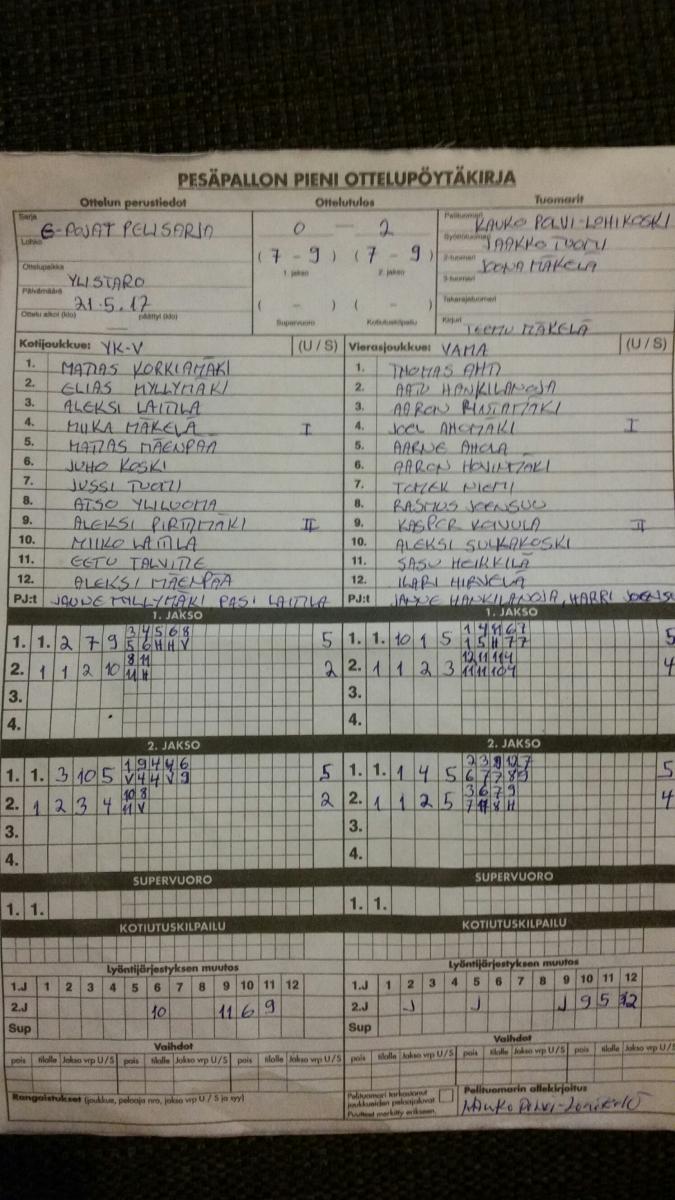 PESÄPALLON PIENI OTTELUPÖYTÄKIRJA
Ottelun perustiedot Ottelutulos Tuomarit
Sarja E-POJAT PELISARJA
Lohko
Ottelupaikka YLISTARO
Päivämäärä 21.5.17
Ottelu alkoi (klo) päättyi (klo)
0 — 2
(7 - 9) (7 - 9)
1. jakso 2. jakso
( - ) ( - )
Supervuoro Kotiutuskilpailu
Pelituomari KAUKO POLVI-LOHIKOSKI
Syöttötuomari JAAKKO TUOMI
2-tuomari JOONA MÄKELÄ
3-tuomari
Takarajatuomari
Kirjuri TEEMU MÄKELÄ
Kotijoukkue: YK-V (U / S)
1. MATIAS KORKIAMÄKI
2. ELIAS MYLLYMÄKI
3. ALEKSI LAITILA
4. MIIKA MÄKELÄ I
5. MATIAS MÄENPÄÄ
6. JUHO KOSKI
7. JUSSI TUOMI
8. ATSO YLILUOMA
9. ALEKSI PIRTTIMÄKI II
10. MIIKO LAITILA
11. EETU TALVITIE
12. ALEKSI MÄENPÄÄ
PJ:t JAUNE MYLLYMÄKI PASI LAITILA
Vierasjoukkue: VAMA (U / S)
1. THOMAS AHTI
2. AATU HANKILANOJA
3. AARON
4. JOEL AHOMÄKI I
5. AARNE AHOLA
6. AARON
7. TOMEK NIEMI
8. RASMUS JOENSUU
9. KASPER KOIVULA II
10. ALEKSI SULKAKOSKI
11. SASU HEIKKILÄ
12. ILARI HIRVELÄ
PJ:t JANNE HANKILANOJA, HARRI JOENSU
1. JAKSO
1. 1. 2 7 9 3 4 5 6 8 5
5 6 H H V
2. 1 1 2 10 8 11 2
11 H
3.
4.
1. JAKSO
1. 1. 10 1 5 1 4 11 6 7 5
1 5 H 7 7
2. 1 1 2 3 12 11 11 4 4
11 11 10 4
3.
4.
2. JAKSO
1. 1. 3 10 5 1 9 4 4 6 5
V 4 4 V 9
2. 1 2 3 4 10 8 2
11 V
3.
4.
2. JAKSO
1. 1. 1 4 5 2 3 9 12 7 5
6 7 7 8 9
2. 1 1 2 5 3 6 7 9 4
7 H 8 H
3.
4.
SUPERVUORO SUPERVUORO
1. 1. 1. 1.
KOTIUTUSKILPAILU KOTIUTUSKILPAILU
Lyöntijärjestyksen muutos
1.J 1 2 3 4 5 6 7 8 9 10 11 12
2.J 10 11 6 9
Sup
Lyöntijärjestyksen muutos
1.J 1 2 3 4 5 6 7 8 9 10 11 12
2.J J J J 9 5 12
Sup
Vaihdot Vaihdot
pois tilalle Jakso vrp U/S pois tilalle Jakso vrp U/S pois tilalle Jakso vrp U/S
pois tilalle Jakso vrp U/S pois tilalle Jakso vrp U/S pois tilalle Jakso vrp U/S
Rangaistukset (joukkue, pelaaja nro, jakso vrp U / S ja syy)
Pelituomari tarkastanut
joukkueiden pelaajaluvat
Puutteet merkitty erikseen.
Pelituomarin allekirjoitus